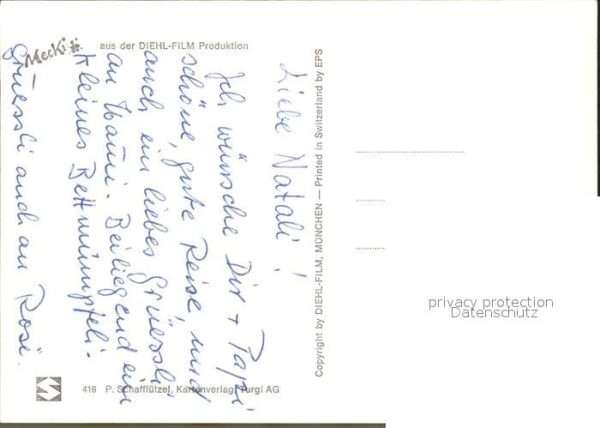 Mecki
aus der DIEHL-FILM Produktion
Liebe Natali!
Ich wünsche Dir + Papi
schöne, gute Reise, und
auch ein liebes Grüessli
an Mami. Beiliegend ein
kleines Bettmümpfeli.
Grüessli auch an Rosi.
Copyright by DIEHL-FILM, MÜNCHEN — Printed in Switzerland by EPS
416 P. Schafflützel, Kartenverlag, Turgi AG
privacy protection
Datenschutz